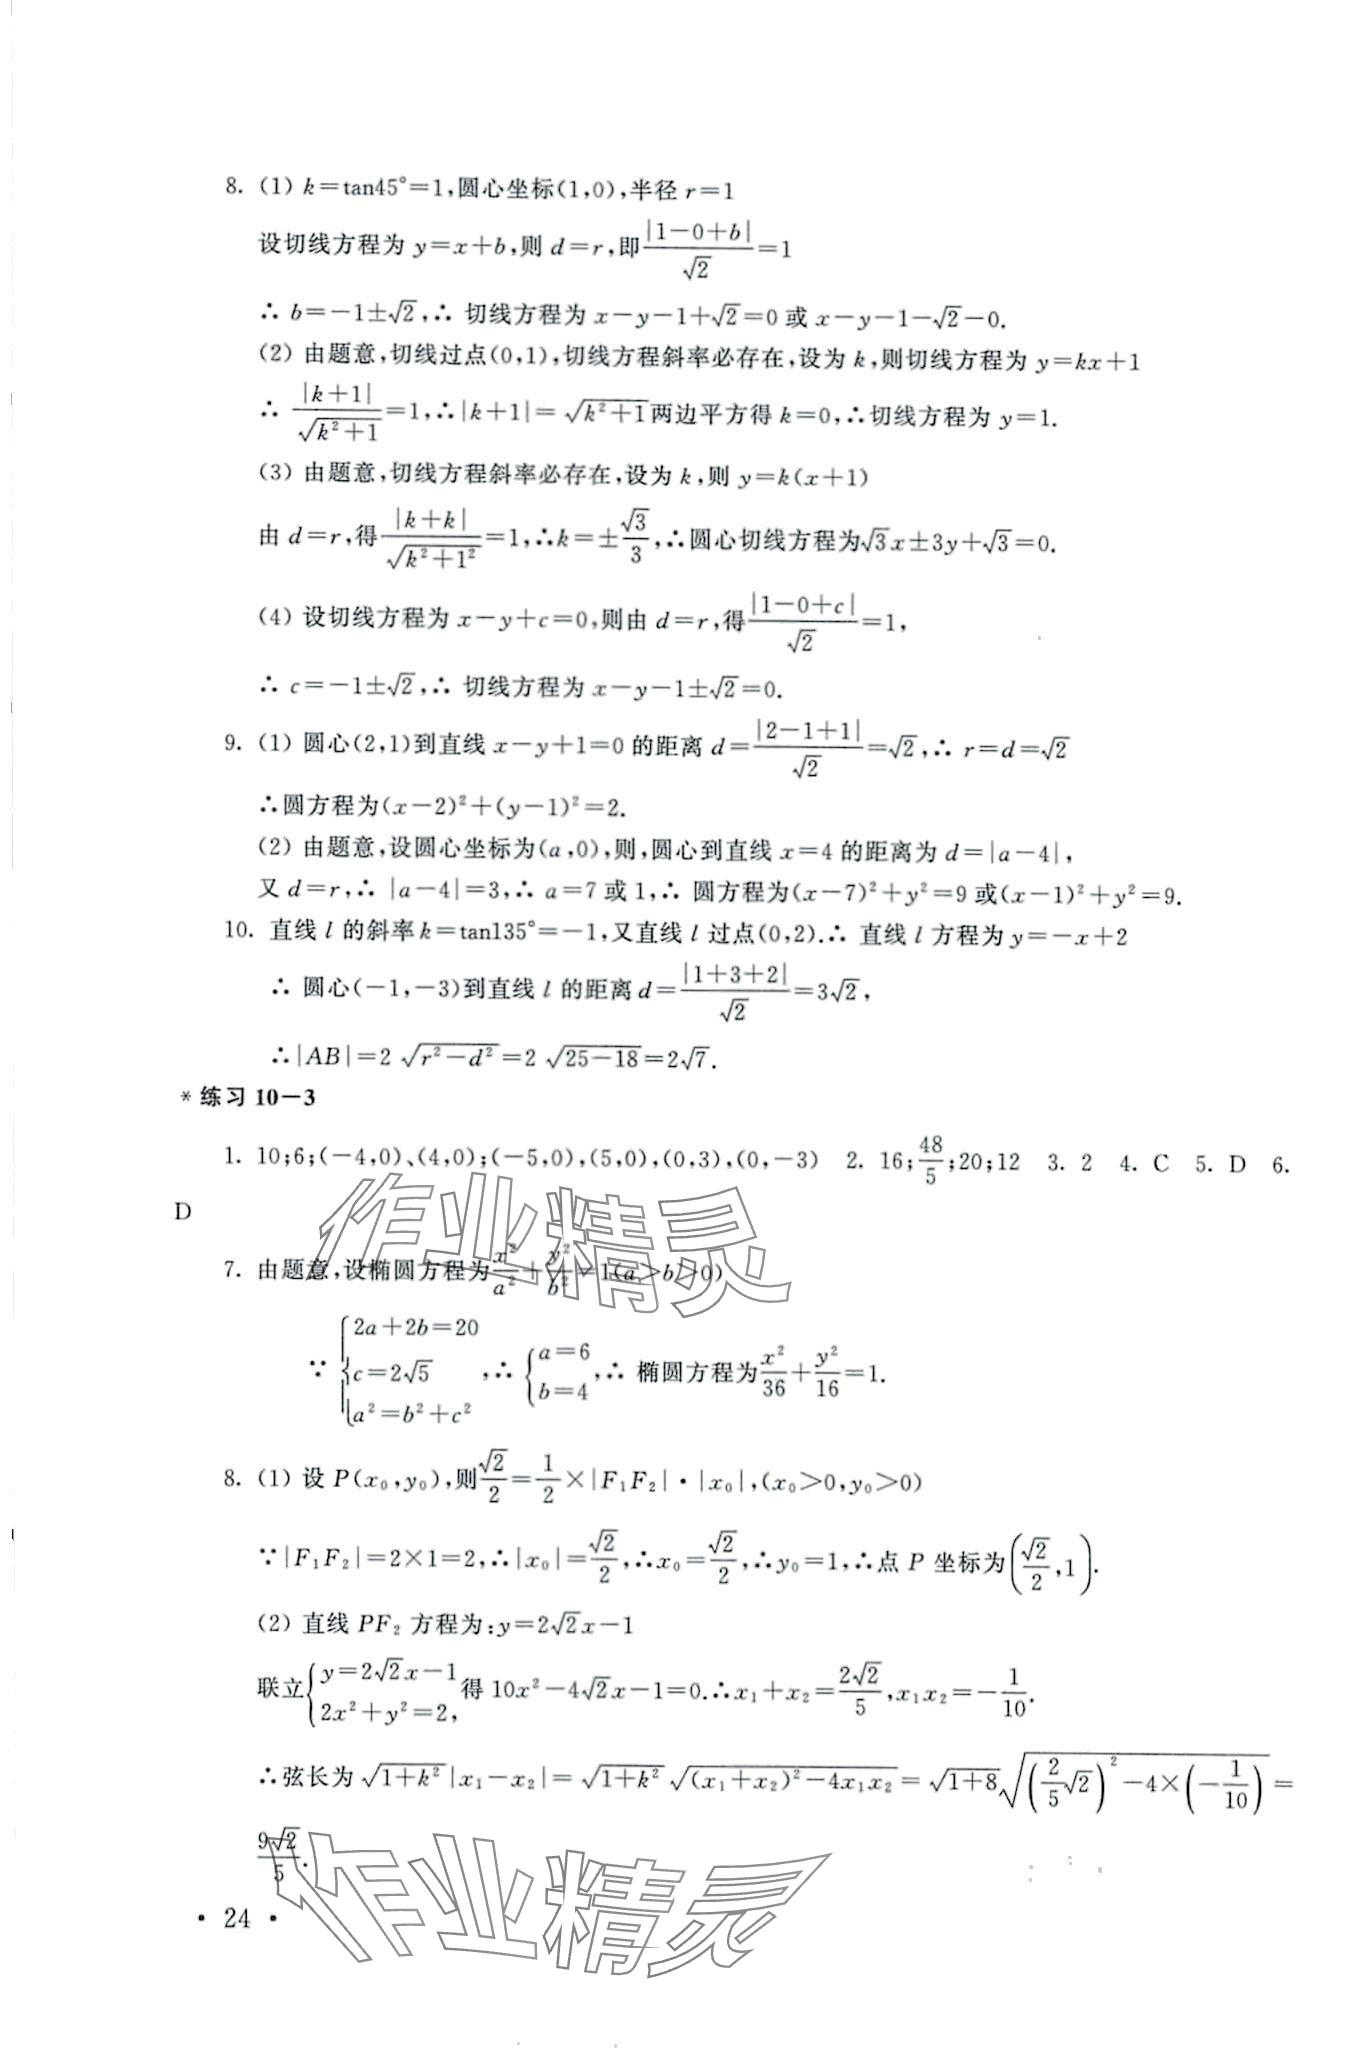 8. (1) k=tan45°=1,圆心坐标(1,0),半径 r=1
设切线方程为 y=x+b,则 d=r,即|1-0+b|/√2=1
∴ b=-1±√2,∴ 切线方程为 x-y-1+√2=0 或 x-y-1-√2-0.
(2) 由题意,切线过点(0,1),切线方程斜率必存在,设为 k,则切线方程为 y=kx+1
∴ |k+1|/√(k²+1)=1,∴|k+1|=√(k²+1)两边平方得 k=0,∴切线方程为 y=1.
(3) 由题意,切线方程斜率必存在,设为 k,则 y=k(x+1)
由 d=r,得|k+k|/√(k²+1²)=1,∴k=±√3/3,∴圆心切线方程为√3x±3y+√3=0.
(4) 设切线方程为 x-y+c=0,则由 d=r,得|1-0+c|/√2=1,
∴ c=-1±√2,∴ 切线方程为 x-y-1±√2=0.
9. (1) 圆心(2,1)到直线 x-y+1=0 的距离 d=|2-1+1|/√2=√2,∴ r=d=√2
∴圆方程为(x-2)²+(y-1)²=2.
(2) 由题意,设圆心坐标为(a,0),则,圆心到直线 x=4 的距离为 d=|a-4|,
又 d=r,∴ |a-4|=3,∴ a=7 或 1,∴ 圆方程为(x-7)²+y²=9 或(x-1)²+y²=9.
10. 直线 l 的斜率 k=tan135°=-1,又直线 l 过点(0,2).∴ 直线 l 方程为 y=-x+2
∴ 圆心(-1,-3)到直线 l 的距离 d=|1+3+2|/√2=3√2,
∴|AB|=2√(r²-d²)=2√(25-18)=2√7.
* 练习 10-3
1. 10;6;(-4,0)、(4,0);(-5,0),(5,0),(0,3),(0,-3) 2. 16;48/5;20;12 3. 2 4. C 5. D 6.
D
作业精灵
7. 由题意,设椭圆方程为x²/a²+y²/b²=1(a>b>0)
∵ {2a+2b=20 c=2√5 a²=b²+c²,∴ {a=6 b=4,∴ 椭圆方程为x²/36+y²/16=1.
8. (1) 设 P(x₀,y₀),则√2/2=1/2×|F₁F₂|·|x₀|,(x₀>0,y₀>0)
∵|F₁F₂|=2×1=2,∴|x₀|=√2/2,∴x₀=√2/2,∴y₀=1,∴点 P 坐标为(√2/2,1).
(2) 直线 PF₂ 方程为:y=2√2x-1
联立{y=2√2x-1 2x²+y²=2,得 10x²-4√2x-1=0.∴x₁+x₂=2√2/5,x₁x₂=-1/10.
∴弦长为√(1+k²)|x₁-x₂|=√(1+k²)√((x₁+x₂)²-4x₁x₂)=√(1+8)√((2/5√2)²-4×(-1/10))=
9√2/5.
作业精灵
• 24 •